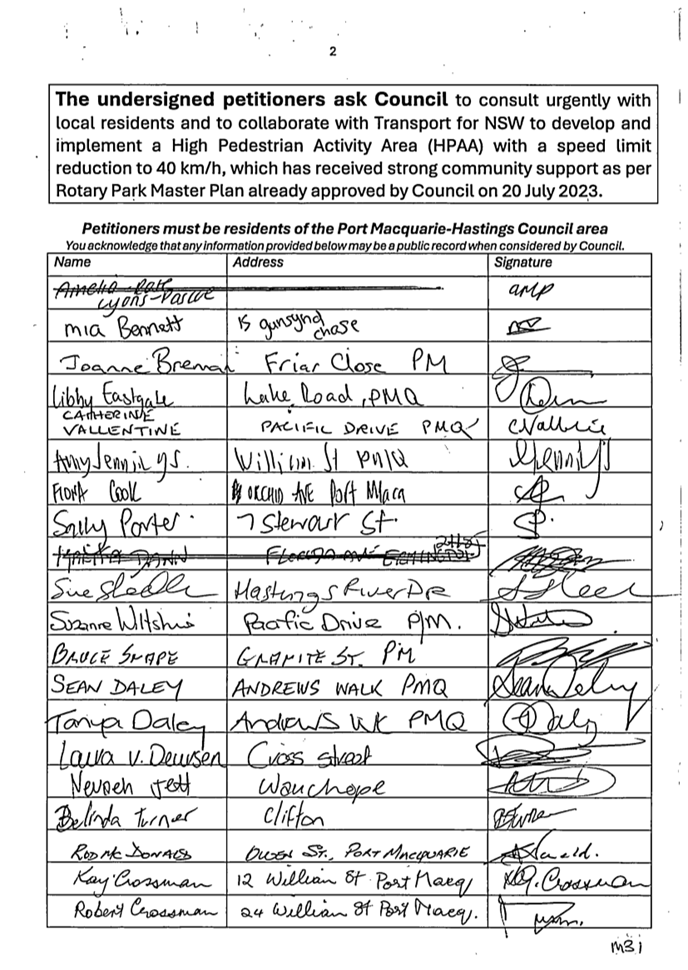 2
The undersigned petitioners ask Council to consult urgently with
local residents and to collaborate with Transport for NSW to develop and
implement a High Pedestrian Activity Area (HPAA) with a speed limit
reduction to 40 km/h, which has received strong community support as per
Rotary Park Master Plan already approved by Council on 20 July 2023.
Petitioners must be residents of the Port Macquarie-Hastings Council area
You acknowledge that any information provided below may be a public record when considered by Council.
Name Address Signature
Lyons-
mia Bennett 15 gunsynd chase
Joanne Brennan Friar Close PM
Libby Eastgate Lake Road, PMQ
CATHERINE VALLENTINE PACIFIC DRIVE PMQ
Amy Jennings. William St PMQ
FIONA Cook ORCHID AVE Port Macq
Sally Porter. 7 Stewart St.
Sue Hastings River DR
Suzanne Wiltshire Pacific Drive P/M.
BRUCE SNAPE GRANITE ST. PM
SEAN DALEY ANDREWS WALK PMQ Sean Daley
Tanya Daley Andrews Wk PMQ Daley
Laura v. Deursen Cross street
Jett Wauchope
Belinda Turner Clifton
ROD MC DONALD OWEN ST., PORT MACQUARIE
Kay Crossman 12 William St Port Macq, K.G. Crossman
Robert Crossman 24 William St Port Macq.